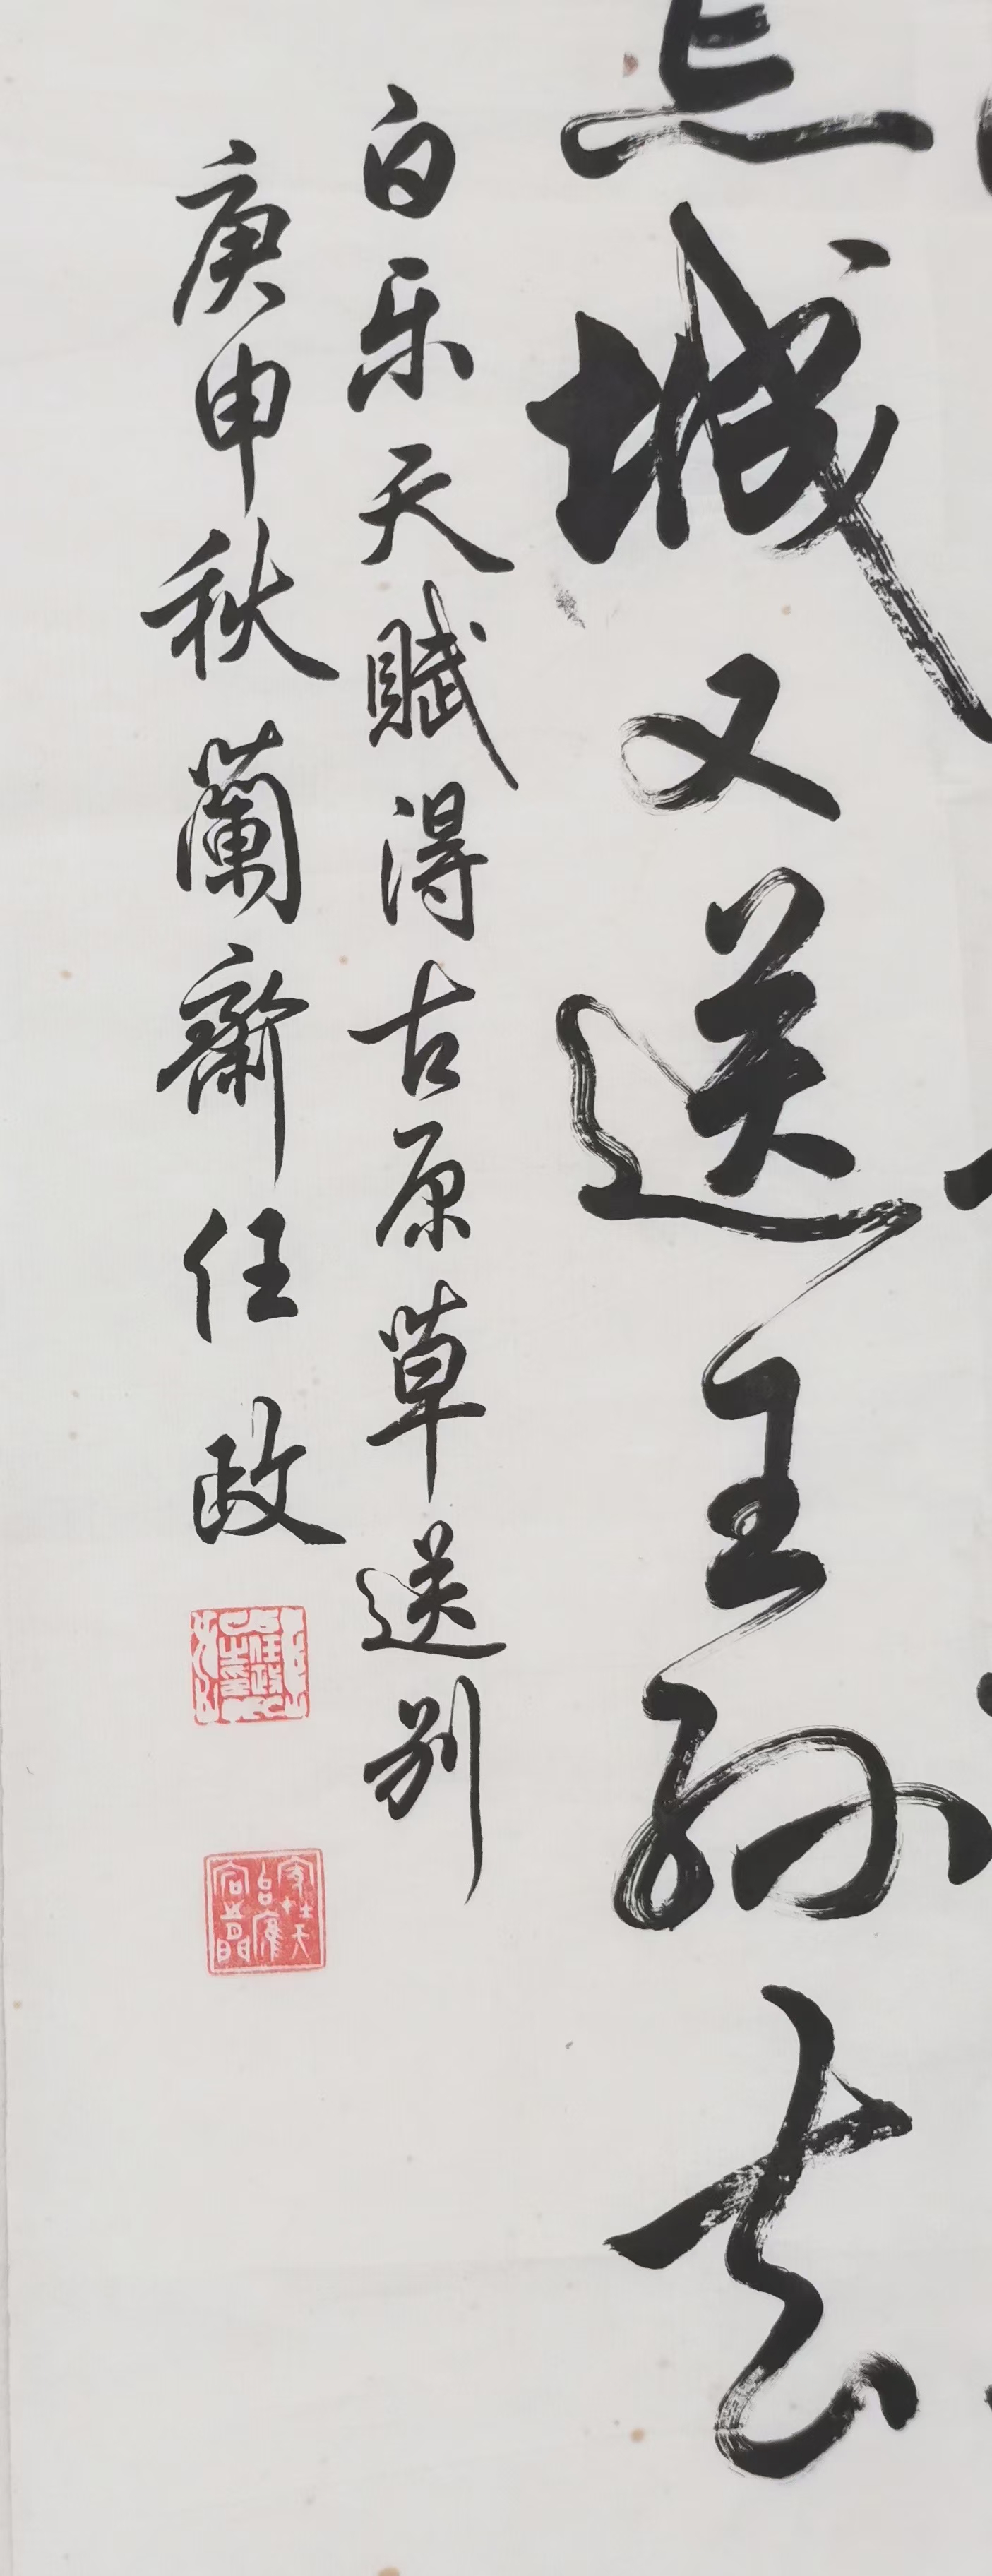 城又送王孙去
白乐天赋得古原草送别
庚申秋蘭斋任政